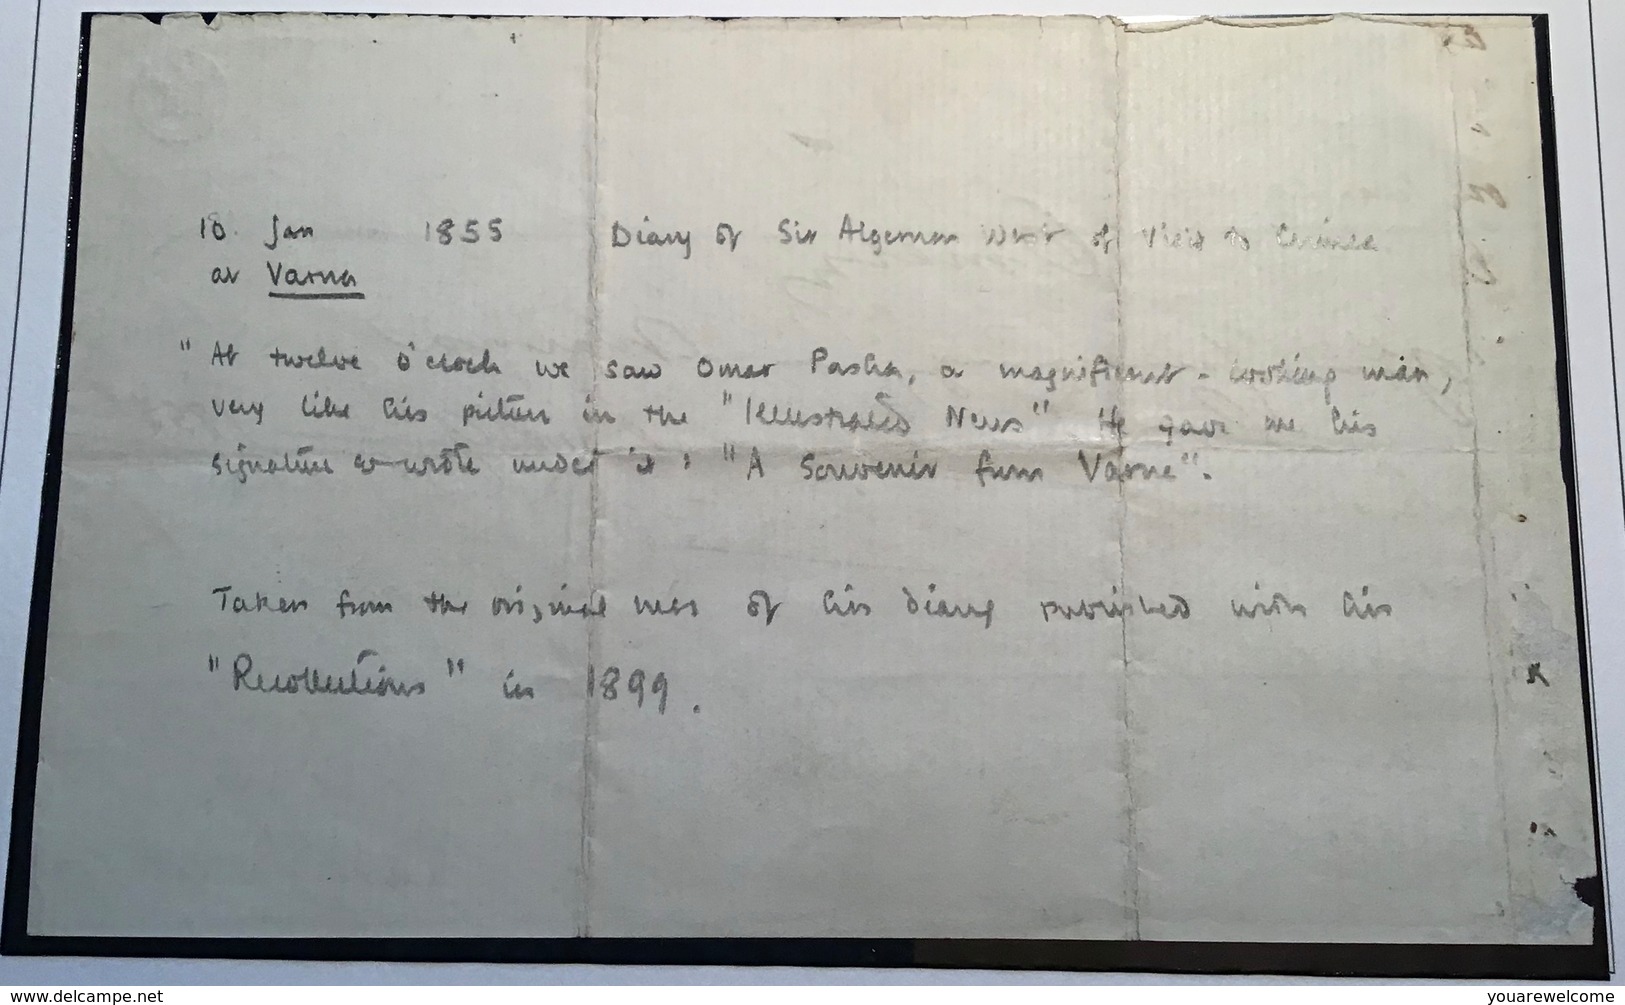 10 Jan 1855 Diary of Sir Algernon West of Visit to Crimea
at Varna
"At twelve o'clock we saw Omar Pasha, a magnificent-looking man,
very like his picture in the "Illustrated News" He gave me his
signature & wrote under it: "A Souvenir from Varna".
Taken from the original mss of his diary published with his
"Recollections" in 1899.
www.delcampe.net
youarewelcome